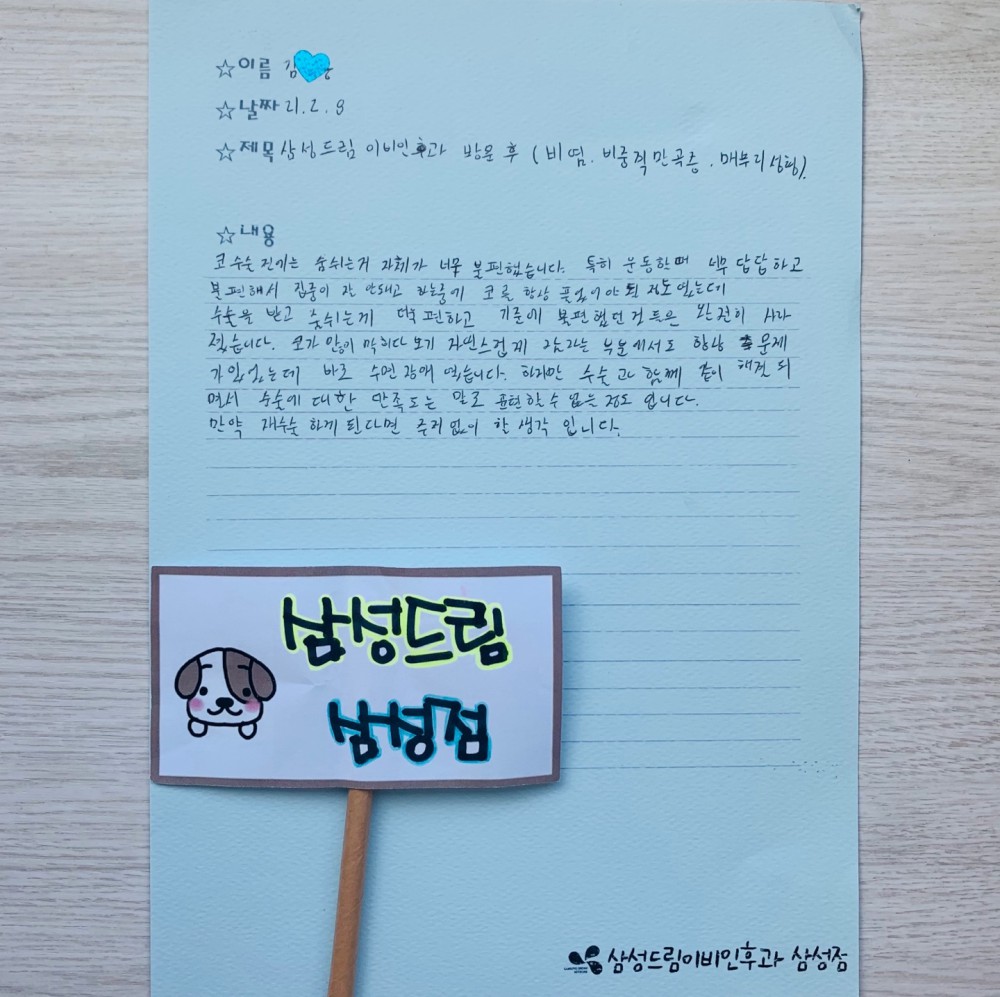 ☆이름 김
☆날짜 21.2.9
☆제목 삼성드림 이비인후과 방문 후 (비염. 비중격만곡증. 매부리성형).
☆내용
코수술 전기는 숨쉬는거 자체가 너무 불편했습니다. 특히 운동할때 너무 답답하고
불편해서 집중이 잘 안돼고 하는중에 코를 항상 풀었어야 될 정도였는데
수술을 받고 숨쉬는게 편하고 기존에 불편했던것들은 완전히 사라
졌습니다. 코가 많이 막히다보니 자연스럽게 잠자는 부분에서도 항상 문제
가있었는데 바로 수면장애 였습니다. 하지만 수술과 함께 같이 해결 되
면서 수술에 대한 만족도는 말로 표현할수 없는 정도 입니다.
만약 재수술 하게 된다면 주저없이 할 생각 입니다.
삼성드림
삼성점
삼성드림이비인후과 삼성점